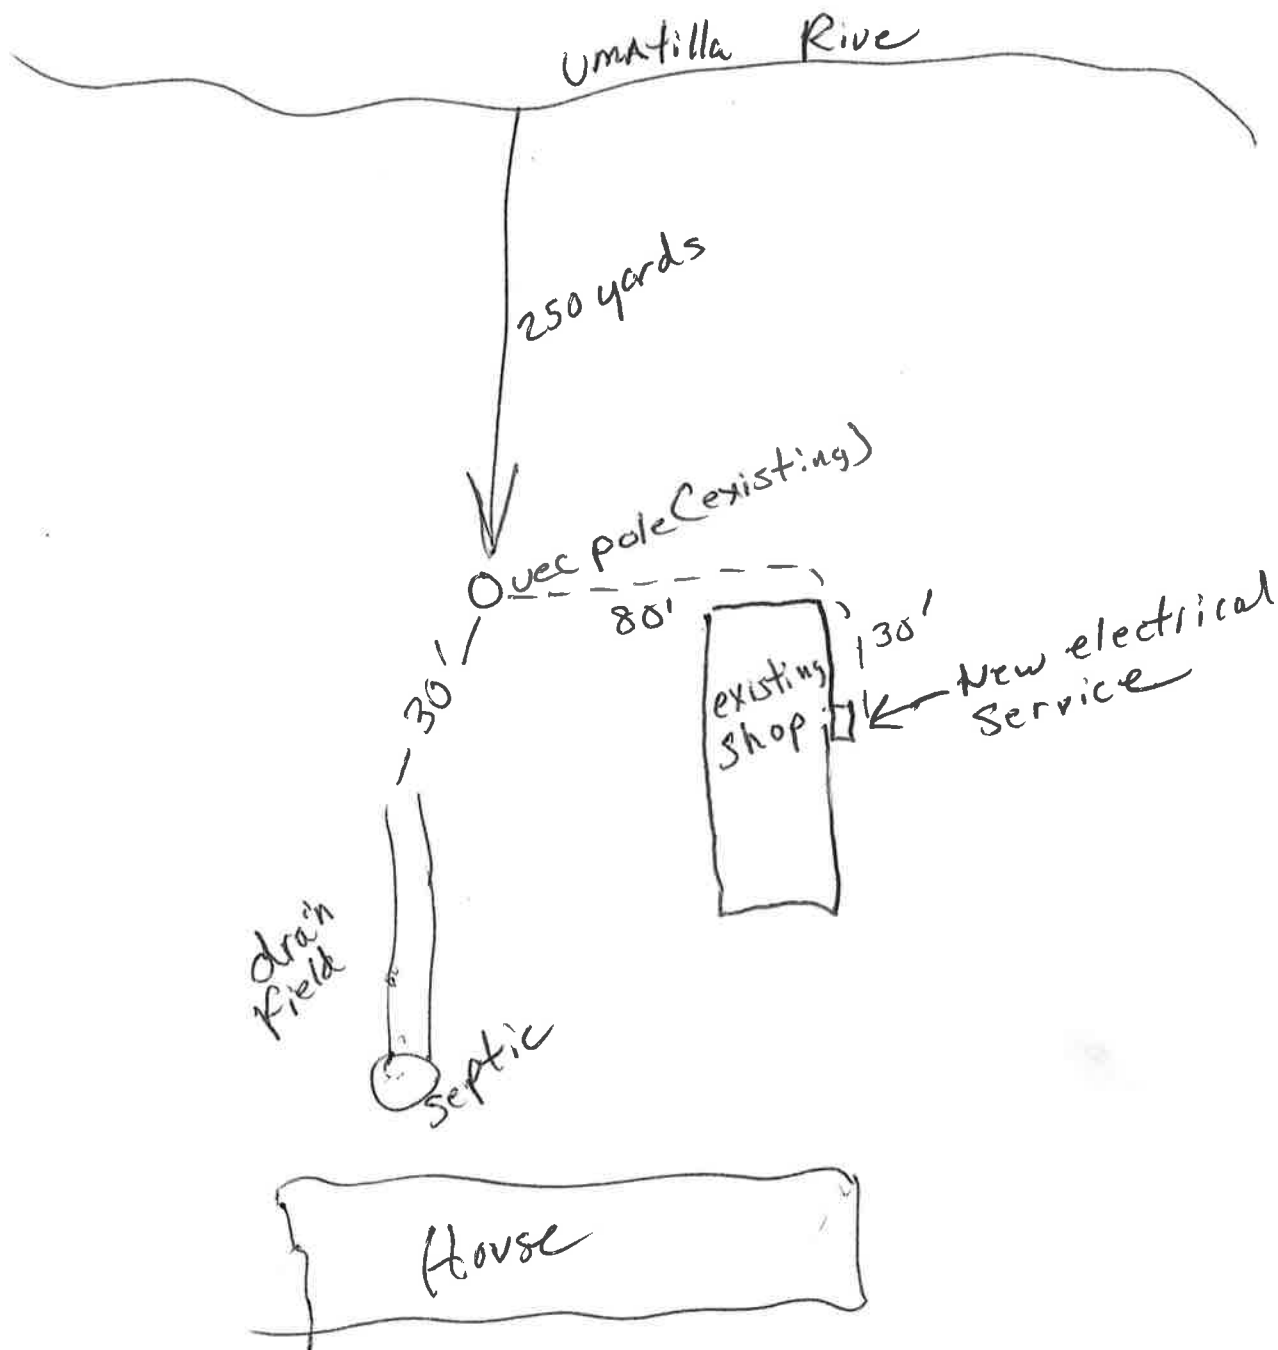 Umatilla Rive
250 yards
uec pole (existing)
80'
30'
30'
existing
shop
New electrical
Service
drain
field
septic
House